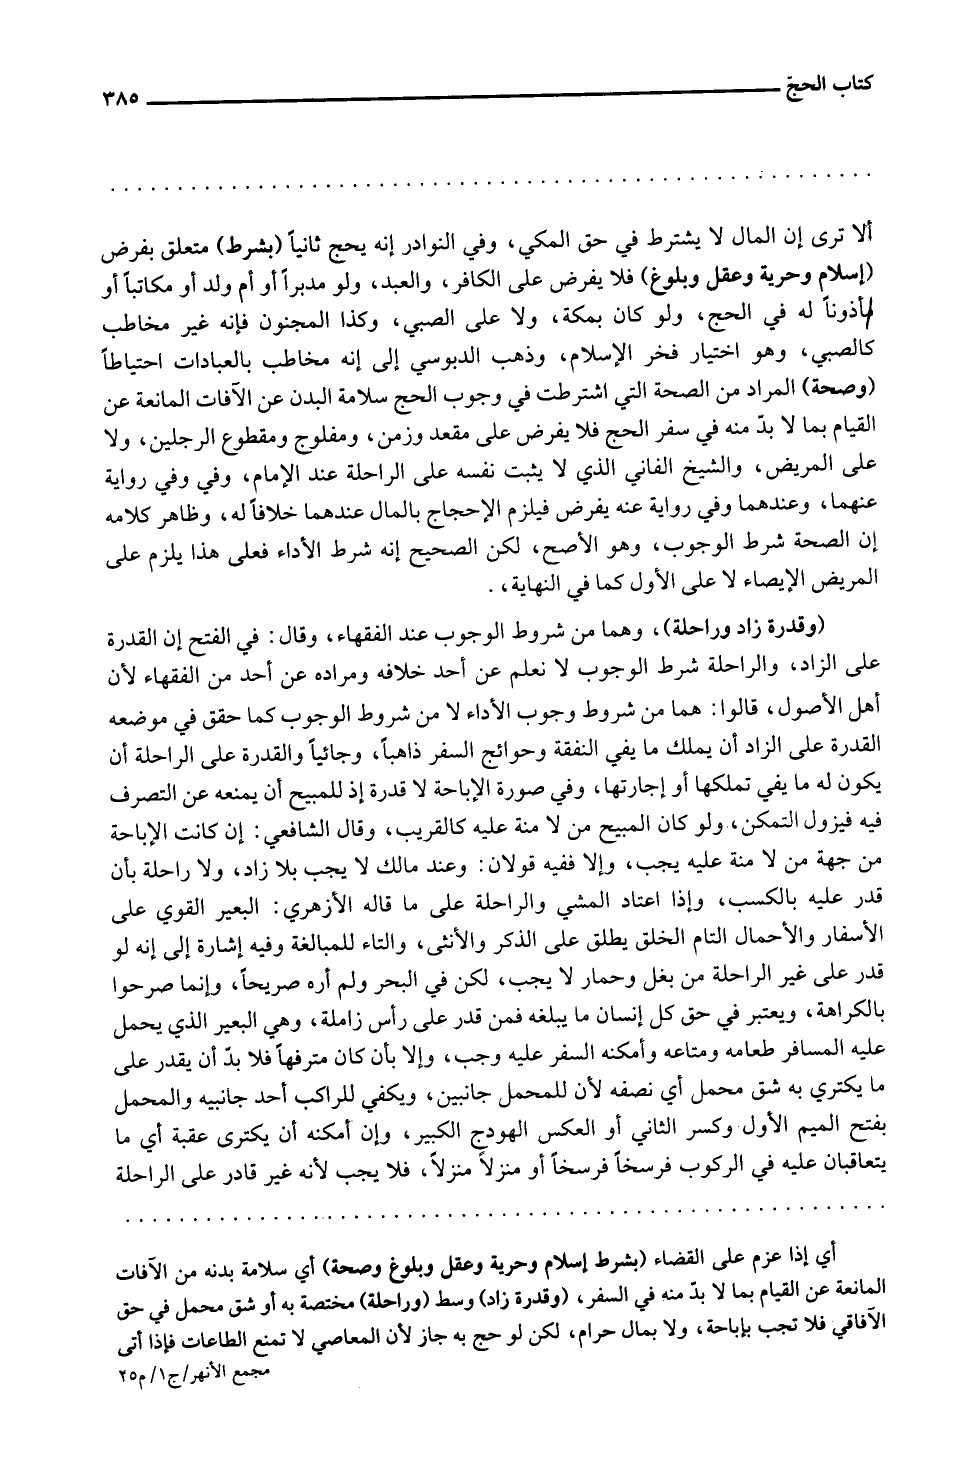 كتاب الحجّ ٣٨٥
ألا ترى إن المال لا يشترط في حق المكي، وفي النوادر إنه يحج ثانياً (بشرط) متعلق بفرض
(إسلام وحرية وعقل وبلوغ) فلا يفرض على الكافر، والعبد، ولو مدبراً أو أم ولد أو مكاتباً أو
مأذوناً له في الحج، ولو كان بمكة، ولا على الصبي، وكذا المجنون فإنه غير مخاطب
كالصبي، وهو اختيار فخر الإسلام، وذهب الدبوسي إلى إنه مخاطب بالعبادات احتياطاً
(وصحة) المراد من الصحة التي اشترطت في وجوب الحج سلامة البدن عن الآفات المانعة عن
القيام بما لا بدّ منه في سفر الحج فلا يفرض على مقعد وزمن، ومفلوج ومقطوع الرجلين، ولا
على المريض، والشيخ الفاني الذي لا يثبت نفسه على الراحلة عند الإمام، وفي وفي رواية
عنهما، وعندهما وفي رواية عنه يفرض فيلزم الإحجاج بالمال عندهما خلافاً له، وظاهر كلامه
إن الصحة شرط الوجوب، وهو الأصح، لكن الصحيح إنه شرط الأداء فعلى هذا يلزم على
المريض الإيصاء لا على الأول كما في النهاية، .
(وقدرة زاد وراحلة)، وهما من شروط الوجوب عند الفقهاء، وقال: في الفتح إن القدرة
على الزاد، والراحلة شرط الوجوب لا نعلم عن أحد خلافه ومراده عن أحد من الفقهاء لأن
أهل الأصول، قالوا: هما من شروط وجوب الأداء لا من شروط الوجوب كما حقق في موضعه
القدرة على الزاد أن يملك ما يفي النفقة وحوائج السفر ذاهباً، وجائياً والقدرة على الراحلة أن
يكون له ما يفي تملكها أو إجارتها، وفي صورة الإباحة لا قدرة إذ للمبيح أن يمنعه عن التصرف
فيه فيزول التمكن، ولو كان المبيح من لا منة عليه كالقريب، وقال الشافعي: إن كانت الإباحة
من جهة من لا منة عليه يجب، وإلا ففيه قولان: وعند مالك لا يجب بلا زاد، ولا راحلة بأن
قدر عليه بالكسب، وإذا اعتاد المشي والراحلة على ما قاله الأزهري: البعير القوي على
الأسفار والأحمال التام الخلق يطلق على الذكر والأنثى، والتاء للمبالغة وفيه إشارة إلى إنه لو
قدر على غير الراحلة من بغل وحمار لا يجب، لكن في البحر ولم أره صريحاً، وإنما صرحوا
بالكراهة، ويعتبر في حق كل إنسان ما يبلغه فمن قدر على رأس زاملة، وهي البعير الذي يحمل
عليه المسافر طعامه ومتاعه وأمكنه السفر عليه وجب، وإلا بأن كان مترفهاً فلا بدّ أن يقدر على
ما يكتري به شق محمل أي نصفه لأن للمحمل جانبين، ويكفي للراكب أحد جانبيه والمحمل
بفتح الميم الأول وكسر الثاني أو العكس الهودج الكبير، وإن أمكنه أن يكترى عقبة أي ما
يتعاقبان عليه في الركوب فرسخاً فرسخاً أو منزلاً منزلاً، فلا يجب لأنه غير قادر على الراحلة
أي إذا عزم على القضاء (بشرط إسلام وحرية وعقل وبلوغ وصحة) أي سلامة بدنه من الآفات
المانعة عن القيام بما لا بدّ منه في السفر، (وقدرة زاد) وسط (وراحلة) مختصة به أو شق محمل في حق
الآفاقي فلا تجب بإباحة، ولا بمال حرام، لكن لو حج به جاز لأن المعاصي لا تمنع الطاعات فإذا أتى
مجمع الأنهر/ج١/م٢٥